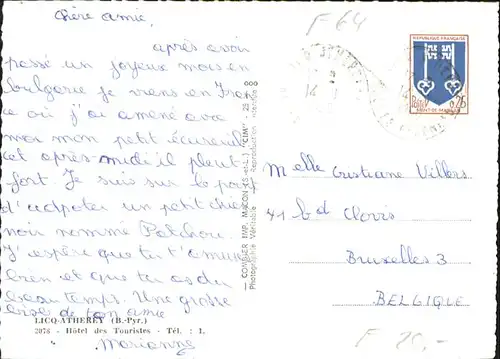 Chère amie,
après avoir
passé un joyeux mois en
Bulgarie je viens en Fran
ce où j'ai amené avec
moi mon petit écureuil
cet après-midi il pleut
fort. Je suis sur le point
d'adopter un petit chien
noir nommé Patchou.
J'espère que tu t'amuses
bien et que tu as du
beau temps. Une grosse
bise de ton amie
Marianne
LICQ-ATHEREY (B.-Pyr.)
2076 - Hôtel des Touristes - Tél. : 1.
— COMBIER IMP. MACON (S.-et-L.) "CIM" - 25 A
Photographie Véritable - Reproduction interdite
F 64
REPUBLIQUE FRANÇAISE
0,25
MONT-DE-MARSAN
Melle Cristiane Villers
41 bd Clovis
Bruxelles 3
BELGIQUE
F 20,-